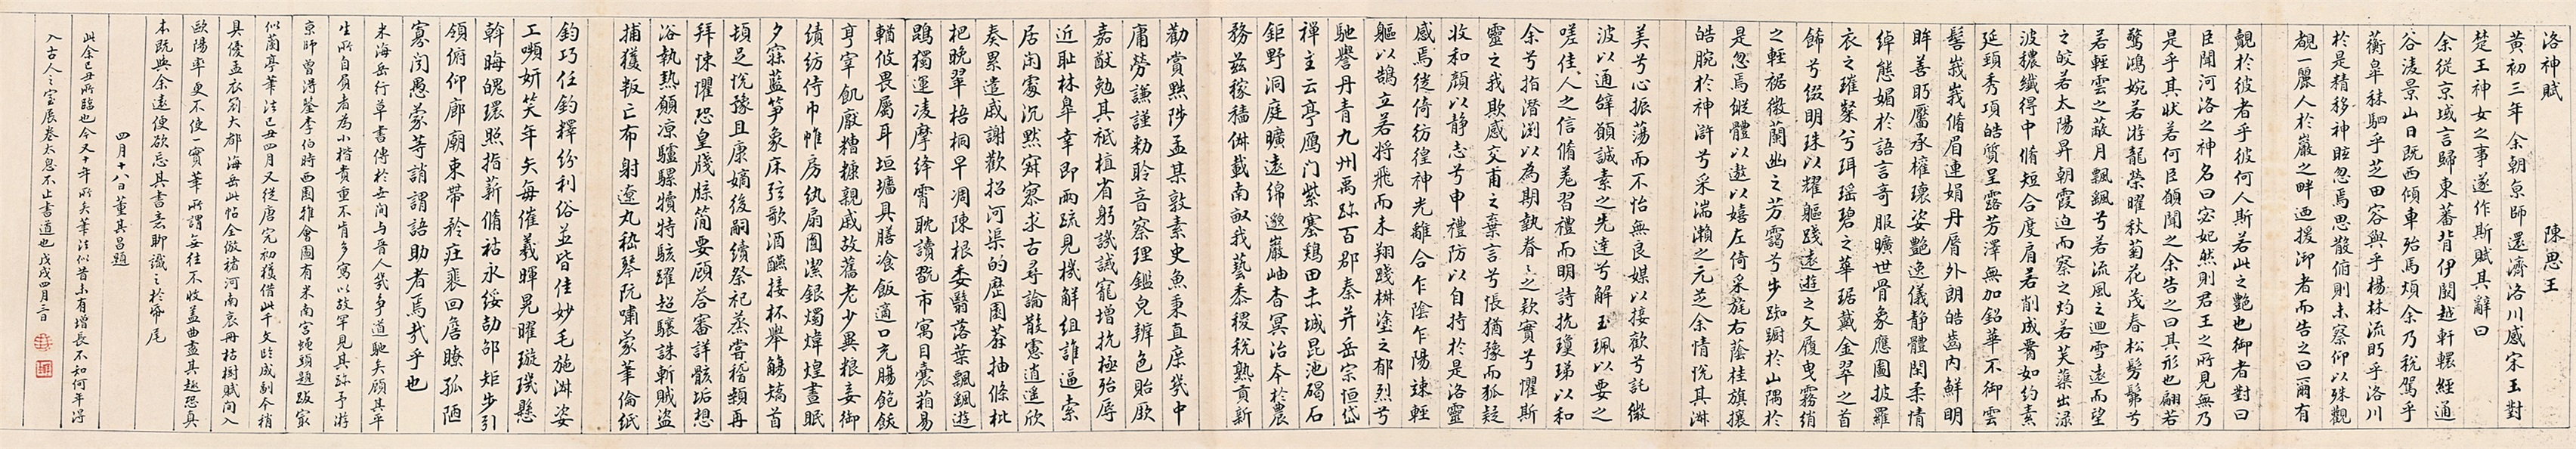 洛神賦 陳思王
黃初三年余朝京師還濟洛川感宋玉對
楚王神女之事遂作斯賦其辭曰
余從京域言歸東蕃背伊闕越轘轅經通
谷陵景山日既西傾車殆馬煩余乃稅駕乎
蘅皋秣駟乎芝田容與乎楊林流眄乎洛川
於是精移神駭忽焉思散俯則未察仰以殊觀
覩一麗人於巖之畔迺援御者而告之曰爾有
覿於彼者乎彼何人斯若此之艷也御者對曰
臣聞河洛之神名曰宓妃然則君王之所見無乃
是乎其狀若何臣願聞之余告之曰其形也翩若
驚鴻婉若游龍榮曜秋菊花茂春松髣髴兮
若輕雲之蔽月飄颻兮若流風之迴雪遠而望
之皎若太陽昇朝霞迫而察之灼若芙蕖出淥
波穠纖得中脩短合度肩若削成腰如約素
延頸秀項皓質呈露芳澤無加鉛華不御雲
髻峩峩脩眉連娟丹脣外朗皓齒內鮮明
眸善眄靨承權瓌姿艷逸儀靜體閑柔情
綽態媚於語言奇服曠世骨象應圖披羅
衣之璀粲兮珥瑤碧之華琚戴金翠之首
飾兮綴明珠以耀軀踐遠遊之文履曳霧綃
之輕裾微蘭幽之芳靄兮步踟躕於山隅於
是忽焉縱體以遨以嬉左倚采旄右蔭桂旗攘
皓腕於神滸兮采湍瀨之元芝余情悅其淋
美兮心振蕩而不怡無良媒以接歡兮託微
波以通辭願誠素之先達兮解玉珮以要之
嗟佳人之信脩羌習禮而明詩抗瓊珶以和
余兮指潛淵以為期執眷之欵實兮懼斯
靈之我欺感交甫之棄言兮悵猶豫而狐疑
收和顏以靜志兮申禮防以自持於是洛靈
感焉徙倚彷徨神光離合乍陰乍陽竦輕
軀以鵠立若將飛而未翔踐椒塗之郁烈兮
馳譽丹青九州禹跡百郡秦并岳宗恒岱
禪主云亭雁門紫塞雞田赤城昆池碣石
鉅野洞庭曠遠綿邈巖岫杳冥治本於農
務茲稼穡俶載南畝我藝黍稷稅熟貢新
勸賞黜陟孟軻敦素史魚秉直庶幾中
庸勞謙謹勑聆音察理鑑皃辨色貽厥
嘉猷勉其祗植省躬譏誡寵增抗極殆辱
近恥林皋幸即兩疏見機解組誰逼索
居閑處沉默寂寥求古尋論散慮逍遙欣
奏累遣慼謝歡招河渠的歷園莽抽條枇
杷晚翠梧桐早凋陳根委翳落葉飄颻遊
鵾獨運凌摩絳霄耽讀翫市寓目囊箱易
輶攸畏屬耳垣墻具膳飡飯適口充腸飽飫
烹宰飢厭糟糠親戚故舊老少異粮妾御
績紡侍巾帷房紈扇圓潔銀燭煒煌晝眠
夕寐藍笋象床弦歌酒讌接杯舉觴矯首
頓足悅豫且康嫡後嗣續祭祀蒸嘗稽顙再
拜悚懼恐皇牋牒簡要顧答審詳骸垢想
浴執熱願涼驢騾犢特駭躍超驤誅斬賊盜
捕獲叛亡布射遼丸嵇琴阮嘯蒙筆倫紙
鈞巧任釣釋紛利俗並皆佳妙毛施淋姿
工嚬妍笑年矢每催羲暉晃曜璇璣懸
斡晦魄環照指薪脩祜永綏劭卲矩步引
領俯仰廊廟束帶矜莊裴回詹瞭孤陋
寡聞愚蒙等誚謂語助者焉哉乎也
米海岳行草書傳於世間與晉人幾爭道馳矣顧其平
生所自負者為小楷貴重不肯多寫以故罕見其跡予游
京師曾得鑒李伯時西園雅會圖有米南宮蠅頭題跋最
似蘭亭筆法己丑四月又從唐完初獲借此千文臨成副本稍
具優孟衣冠大都海岳此帖全倣褚河南哀冊枯樹賦間入
歐陽率更不使一實筆所謂無往不收蓋曲盡其趣恐真
本既與余遠便欲忘其書意聊識之於紙尾
四月十八日董其昌題
此余己丑所臨也今又十年所矣筆法似昔未有增長不知何年得
入古人之室展卷太息不止書道也戊戌四月三日